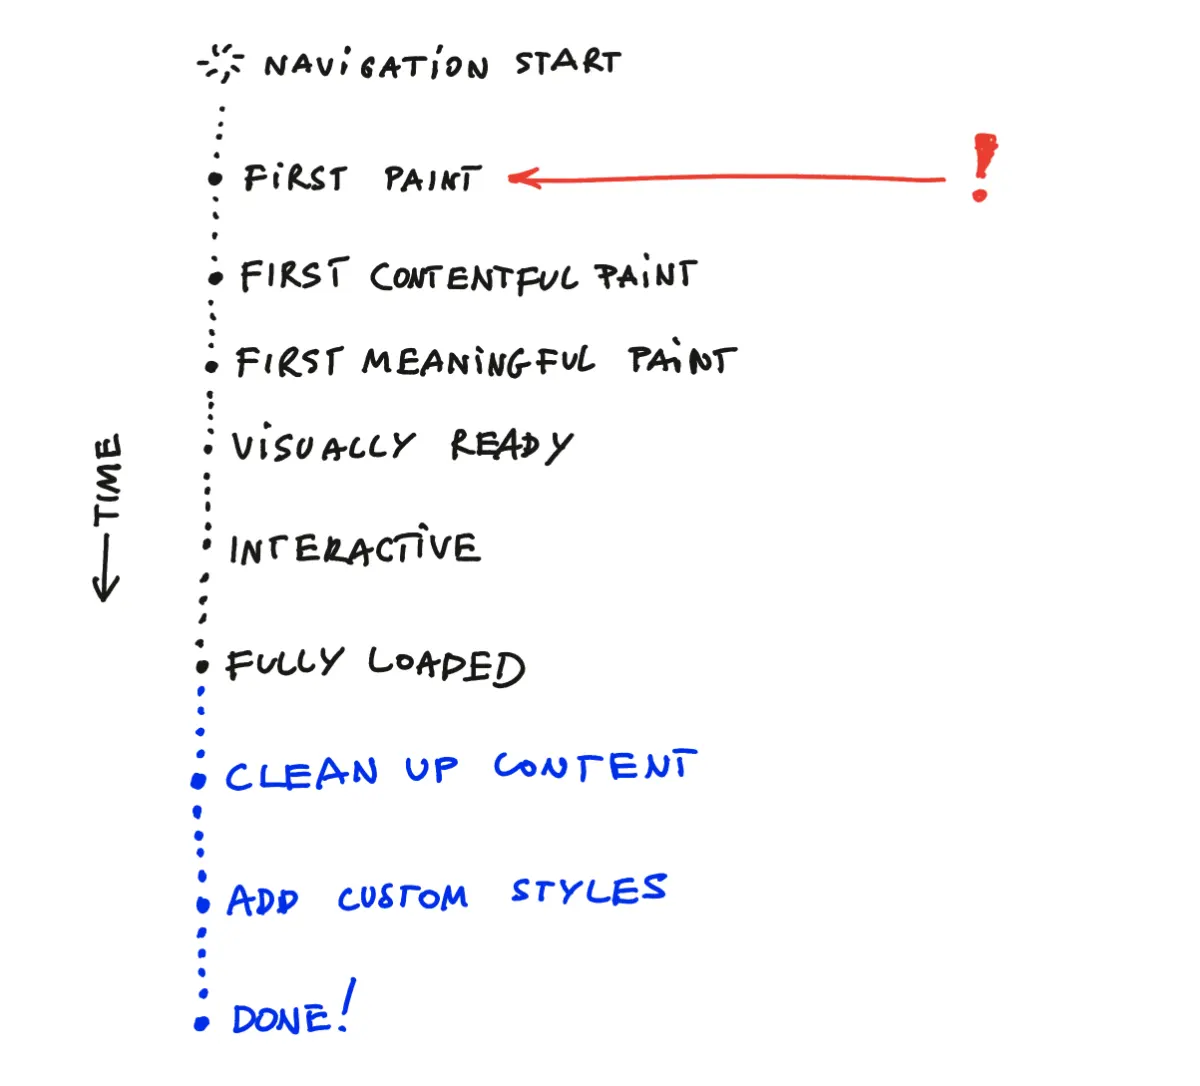 NAVIGATION START
FIRST PAINT
!
FIRST CONTENTFUL PAINT
FIRST MEANINGFUL PAINT
VISUALLY READY
TIME
INTERACTIVE
FULLY LOADED
CLEAN UP CONTENT
ADD CUSTOM STYLES
DONE!